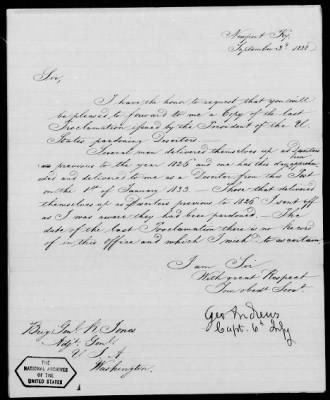 Newport Ky.
September 3d 1838
Sir,
I have the honor to request that you will
be pleased to forward to me a Copy of the last
Proclamation issued by the President of the U.
States pardoning Deserters.
Several men delivered themselves up as Deserters
previous to the year 1826 and one has this day been apprehen
ded and delivered to me as a Deserter from this Post
on the 1st of January 1833. — Those that delivered
themselves up as Deserters previous to 1826 I sent off
as I was aware they had been pardoned. — The
date of the last Proclamation there is no Record
of in this office and which I wish to ascertain
I am Sir
With great Respect
Your obedt Servt
Geo Andrews
Capt. 6th Infy
Brig Genl R. Jones
Adjt. Genl.
U S A
Washington.
THE
NATIONAL ARCHIVES
OF THE
UNITED STATES